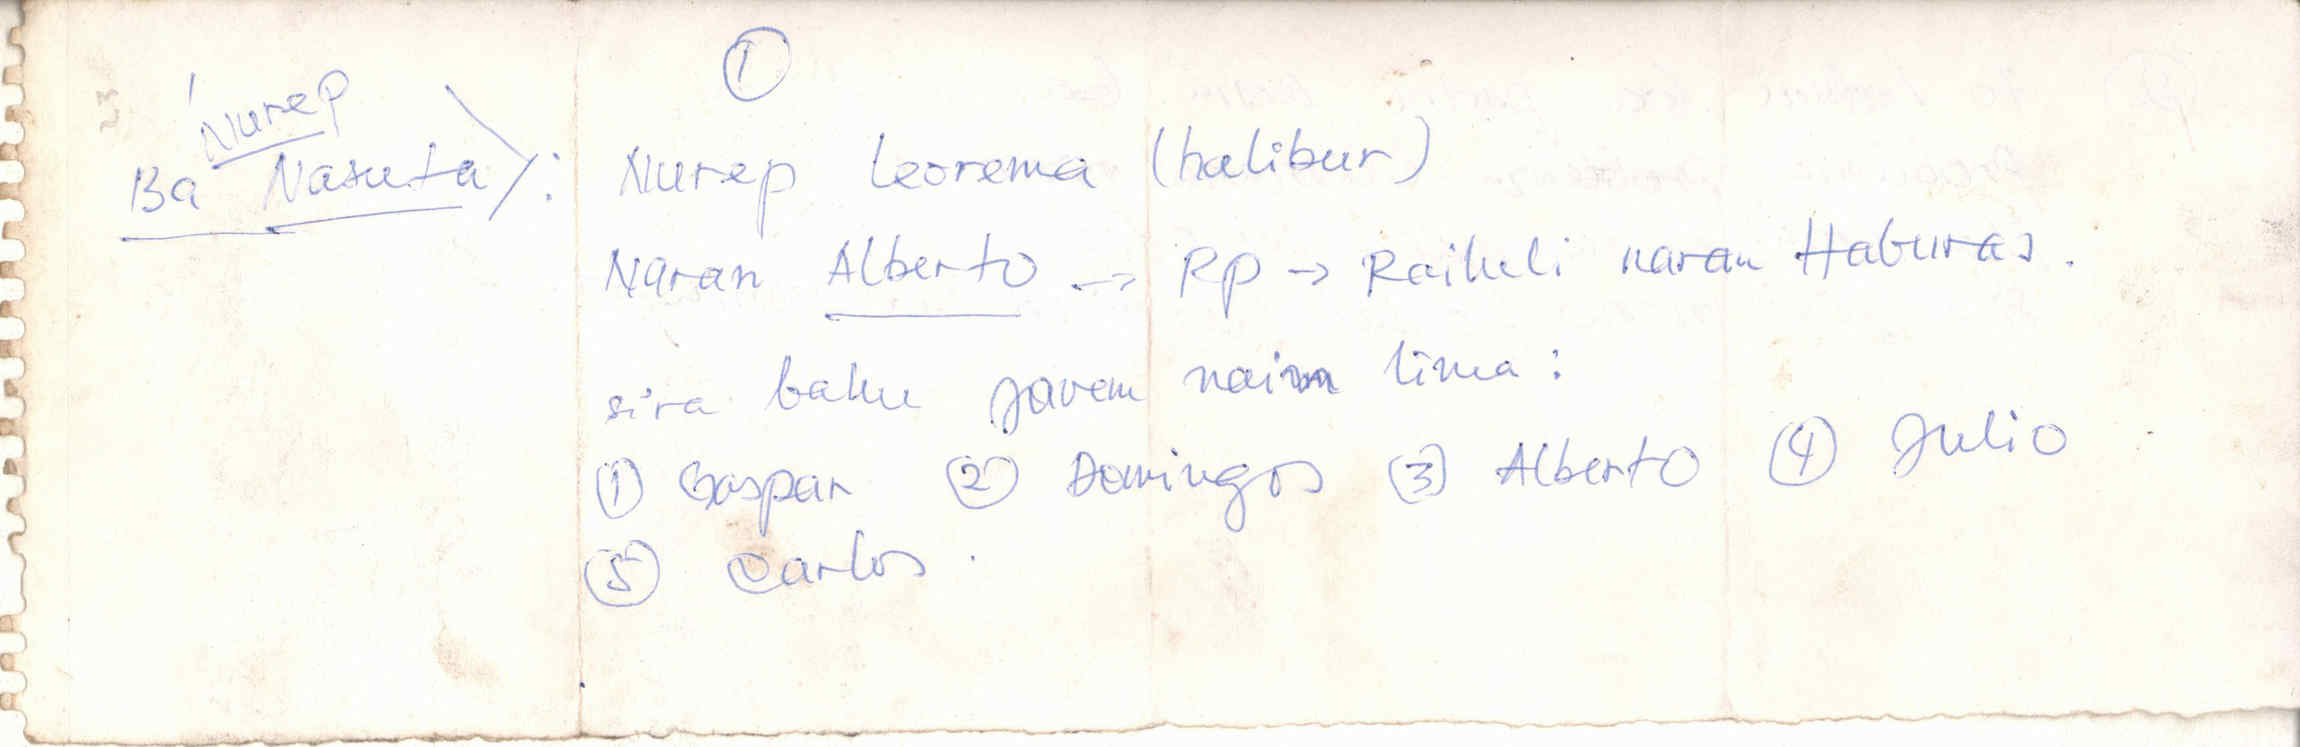 ①
Nurep
Ba Nasuta : Nurep Leorema (halibur)
Naran Alberto → RP → Raihuli naran Haburas.
sira bahu jovem nain lima :
① Gaspar ② Domingos ③ Alberto ④ Julio
⑤ Carlos .